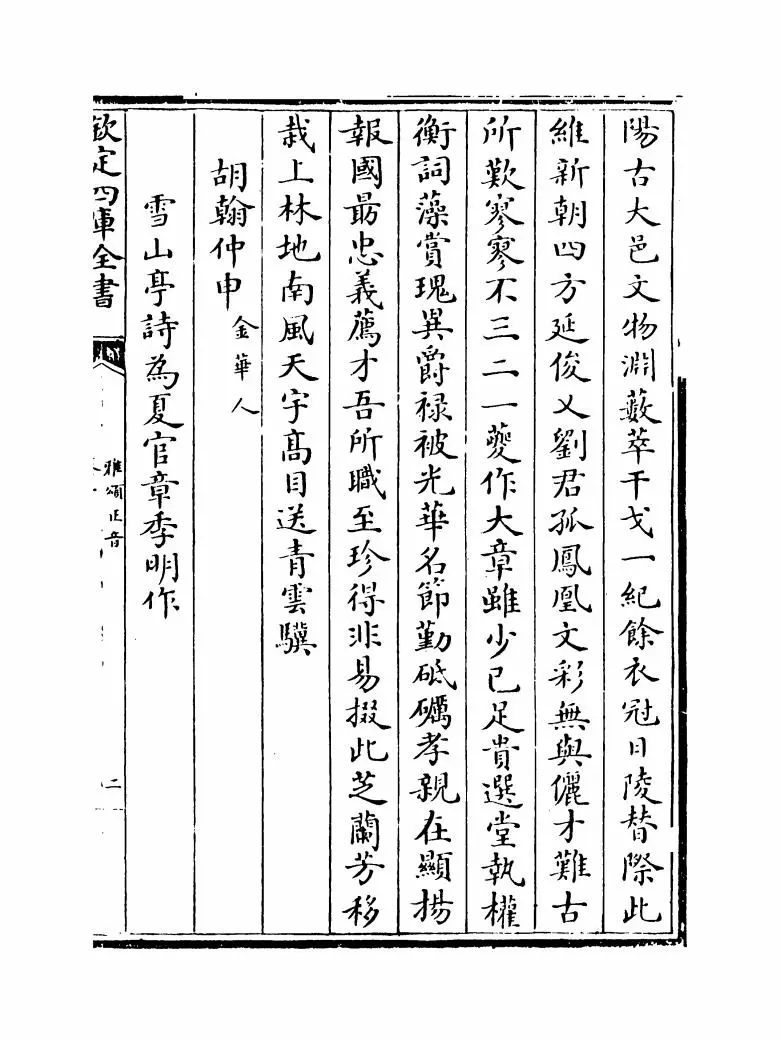 陽古大邑文物淵藪萃干戈一紀餘衣冠日陵替際此
維新朝四方延俊乂劉君孤鳳凰文彩無與儷才難古
所歎寥寥不三二一夔作大章雖少已足貴選堂執權
衡詞藻賞瑰異爵禄被光華名節勤砥礪孝親在顯揚
報國最忠義薦才吾所職至珍得非易掇此芝蘭芳移
栽上林地南風天宇髙目送青雲驥
胡翰仲申金華人
雪山亭詩為夏官章季明作
欽定四庫全書
雅頌正音
二